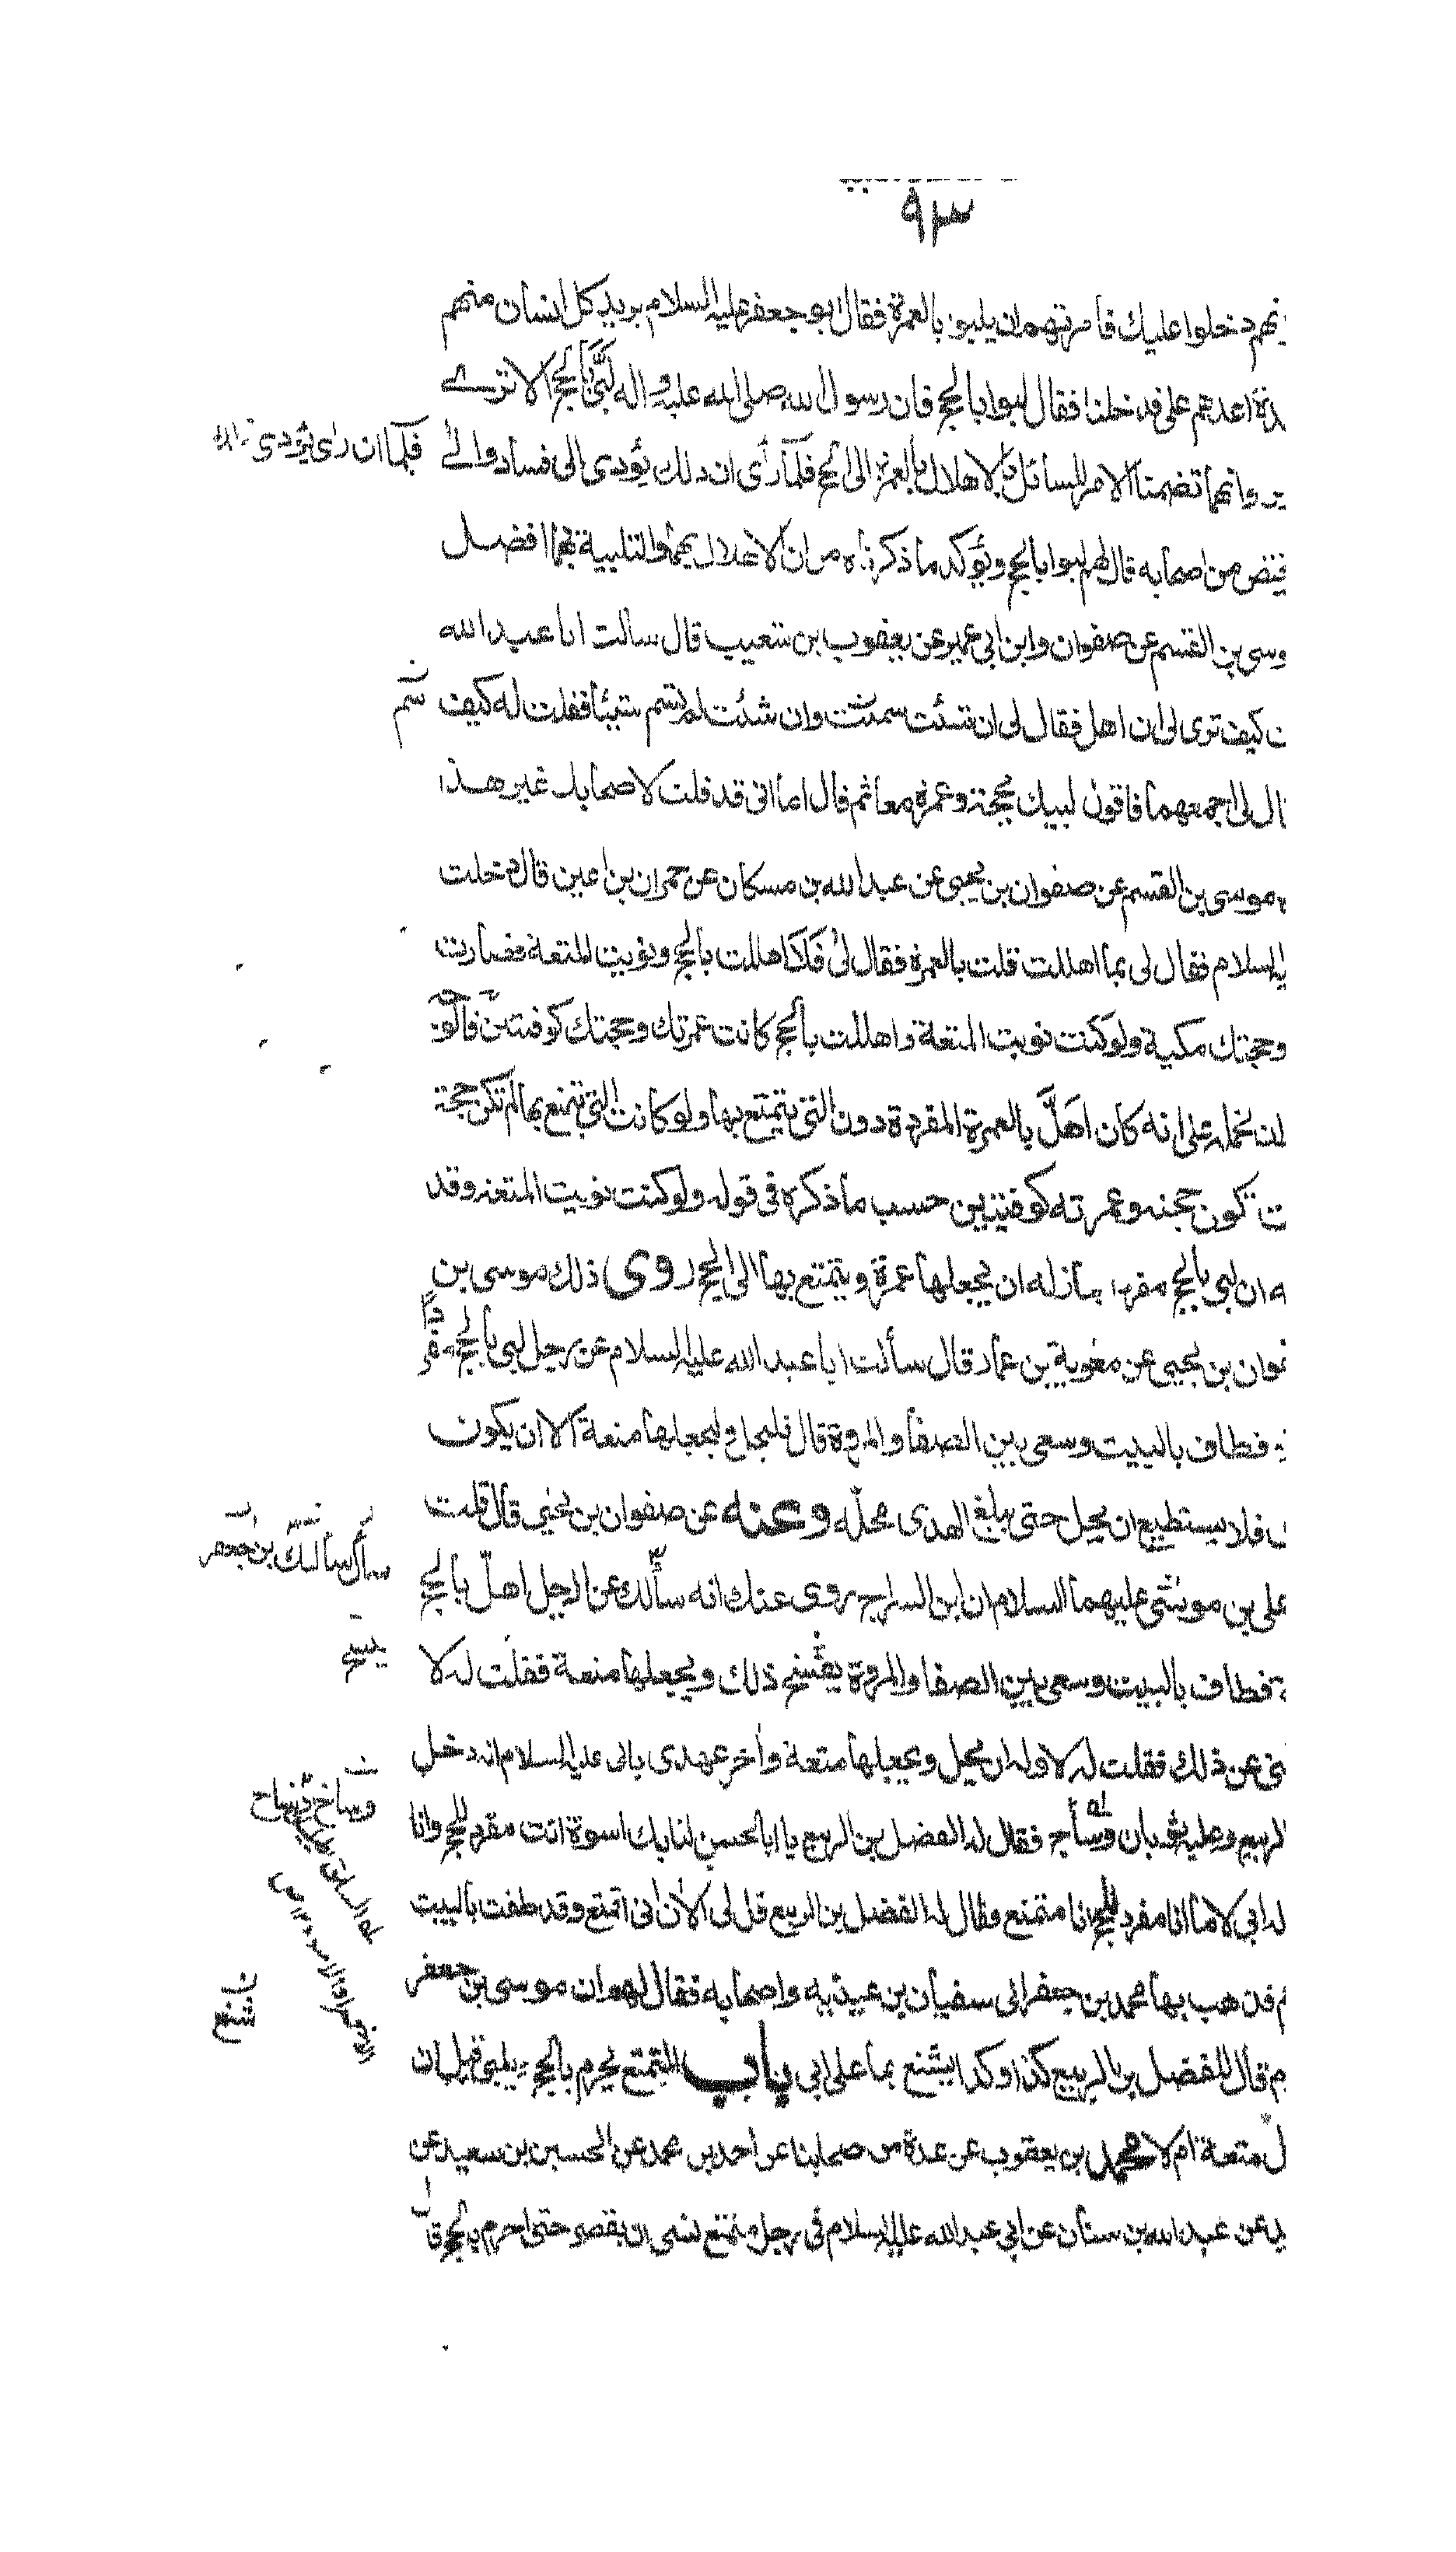 ٩٣
دخلوا عليك فامرتهم ان يلبوا بالعمرة فقال ابو جعفر عليه السلام يريد كل انسان منهم
اعدهم على فدخلنا فقال لبوا بالحج فان رسول الله صلى الله عليه واله لبّى بالحج الا ترى
وانهما تضمنتا الامر للسائل بالاهلال بالعمرة الى الحج فلمّا رأى ان ذلك يؤدى الى فساد والى
فلمّا ان راى يؤدى
من اصحابه قال لهم لبوا بالحج ويؤكد ما ذكرناه من ان الاهلال بهما والتلبية بهما افضل
بن القسم عن صفوان وابن ابي عمير عن يعقوب بن شعيب قال سالت ابا عبد الله
كيف ترى لى ان اهل فقال لى ان شئت سميت وان شئت لم تسم شيئا فقلت له كيف
لى اجمعهما فاقول لبيك بحجة وعمرة معا ثم قال اما انى قد قلت لاصحابك غير هذا
موسى بن القسم عن صفوان بن يحيى عن عبد الله بن مسكان عن حمران بن اعين قال دخلت
السلام فقال لى بما اهللت قلت بالعمرة فقال لى افلا اهللت بالحج ونويت المتعة فصارت
وحجتك مكية ولو كنت نويت المتعة واهللت بالحج كانت عمرتك وحجتك كوفيتين
نحمله على انه كان اهلّ بالعمرة المفردة دون التى يتمتع بها ولو كانت التى يتمتع بها لم تكن حجته
تكون حجته وعمرته كوفيتين حسب ما ذكره فى قوله ولو كنت نويت المتعة وقد
ان لبى بالحج مفردا جاز له ان يجعلها عمرة ويتمتع بها الى الحج روى ذلك موسى بن
بن يحيى عن معوية بن عمار قال سألت ابا عبد الله عليه السلام عن رجل لبى بالحج مفردا
فطاف بالبيت وسعى بين الصفا والمروة قال فليحل وليجعلها متعة الا ان يكون
فلا يستطيع ان يحل حتى يبلغ الهدى محلّه وعنه عن صفوان بن يحيى قال قلت
على بن موسى عليهما السلام ان ابن السراج روى عنك انه سألك عن الرجل اهلّ بالحج
فطاف بالبيت وسعى بين الصفا والمروة يفسخ ذلك ويجعلها متعة فقلت له لا
عن ذلك فقلت له لا وله ان يحل ويجعلها متعة واخر عهدى بابى عليه السلام انه دخل
الربيع وعليه ثوبان وساج فقال له الفضل بن الربيع يا ابا الحسن لنا بك اسوة انت مفرد للحج وانا
له ابي لا ما انا مفرد للحج انا متمتع فقال له الفضل بن الربيع قل لى الان انى اتمتع وقد طفت بالبيت
فذهب بها محمد بن جعفر الى سفيان بن عيينه واصحابه فقال لهم ان موسى بن جعفر
قال للفضل بن الربيع كذا وكذا يشنع بها على ابي باب المتمتع يحرم بالحج يلبى قبل ان
متعة ام لا محمد بن يعقوب عن عدة من اصحابنا عن احمد بن محمد عن الحسين بن سعيد عن
عن عبد الله بن سنان عن ابي عبد الله عليه السلام فى رجل متمتع نسى ان يقصر حتى احرم بالحج قال